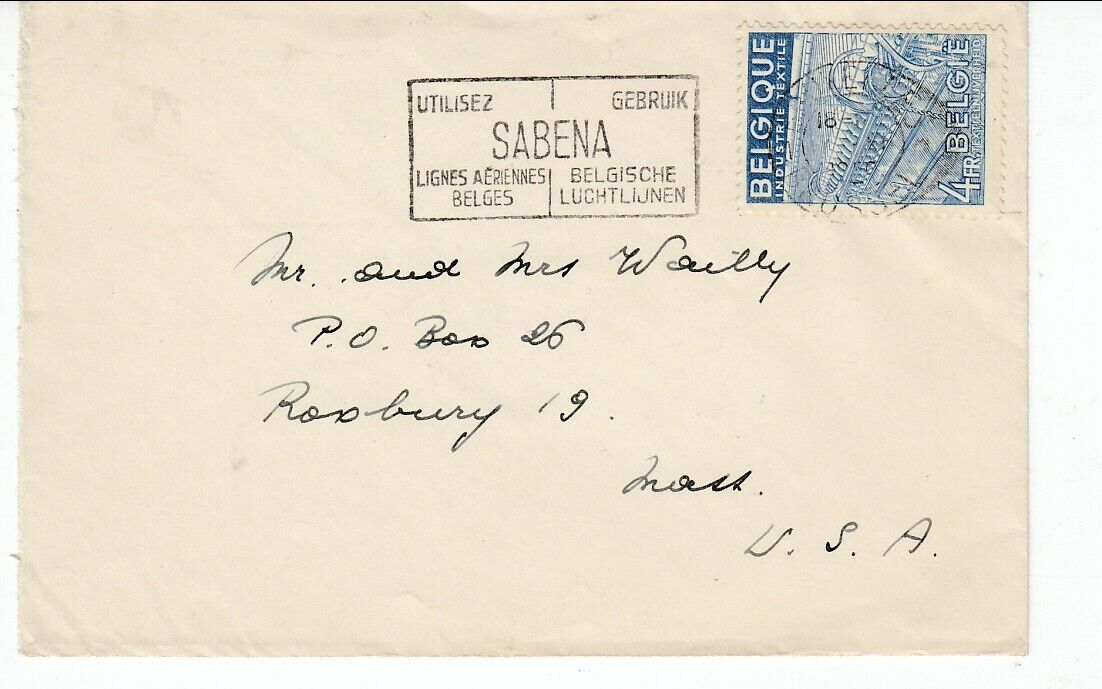 UTILISEZ GEBRUIK
SABENA
LIGNES AÉRIENNES BELGES
BELGISCHE LUCHTLIJNEN
BELGIQUE
INDUSTRIE TEXTILE
4 FR.
BELGIË
TEXTIELNIJVERHEID
Mr. and Mrs Wailly
P.O. Box 26
Roxbury 19.
Mass.
U. S. A.